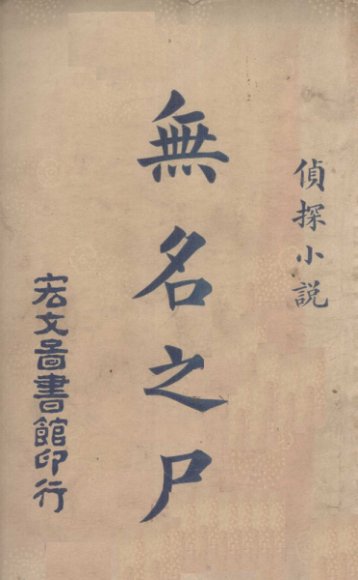 偵探小說
無名之尸
宏文圖書館印行